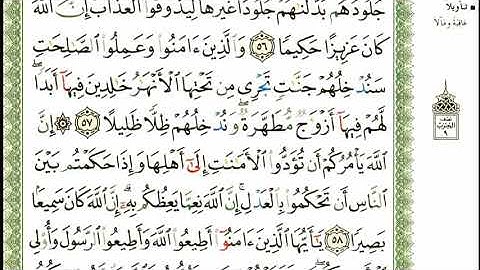 جُلُودُهُم بَدَّلْنَٰهُمْ جُلُودًا غَيْرَهَا لِيَذُوقُوا۟ ٱلْعَذَابَ إِنَّ ٱللَّهَ
كَانَ عَزِيزًا حَكِيمًا ٥٦ وَٱلَّذِينَ ءَامَنُوا۟ وَعَمِلُوا۟ ٱلصَّٰلِحَٰتِ
سَنُدْخِلُهُمْ جَنَّٰتٍ تَجْرِى مِن تَحْتِهَا ٱلْأَنْهَٰرُ خَٰلِدِينَ فِيهَآ أَبَدًا
لَّهُمْ فِيهَآ أَزْوَٰجٌ مُّطَهَّرَةٌ وَنُدْخِلُهُمْ ظِلًّا ظَلِيلًا ٥٧ ۞ إِنَّ
ٱللَّهَ يَأْمُرُكُمْ أَن تُؤَدُّوا۟ ٱلْأَمَٰنَٰتِ إِلَىٰٓ أَهْلِهَا وَإِذَا حَكَمْتُم بَيْنَ
ٱلنَّاسِ أَن تَحْكُمُوا۟ بِٱلْعَدْلِ إِنَّ ٱللَّهَ نِعِمَّا يَعِظُكُم بِهِۦٓ إِنَّ ٱللَّهَ كَانَ سَمِيعًۢا
بَصِيرًا ٥٨ يَٰٓأَيُّهَا ٱلَّذِينَ ءَامَنُوٓا۟ أَطِيعُوا۟ ٱللَّهَ وَأَطِيعُوا۟ ٱلرَّسُولَ وَأُو۟لِى
تأويلا
عاقبة ومآلا
نصف
الحزب
٩